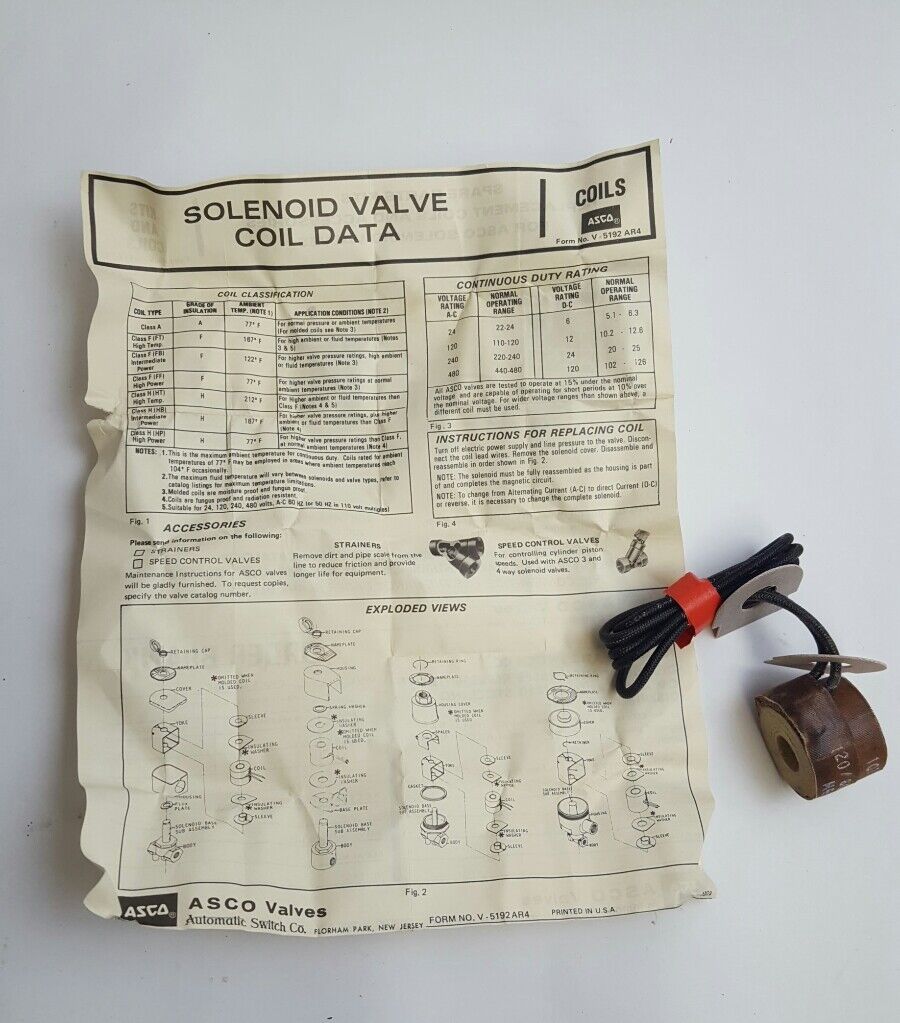 SOLENOID VALVE
COIL DATA
COILS
ASCO®
Form No. V - 5192 AR4
COIL CLASSIFICATION
COIL TYPE GRADE OF INSULATION AMBIENT TEMP. (NOTE 1) APPLICATION CONDITIONS (NOTE 2)
Class A A 77° F For normal pressure or ambient temperatures (For molded coils see Note 3)
Class F (FT) High Temp. F 167° F For high ambient or fluid temperatures (Notes 3 & 5)
Class F (FB) Intermediate Power F 122° F For higher valve pressure ratings, high ambient or fluid temperatures (Note 3)
Class F (FF) High Power F 77° F For higher valve pressure ratings at normal ambient temperatures (Note 3)
Class H (HT) High Temp. H 212° F For higher ambient or fluid temperatures than Class F (Notes 4 & 5)
Class H (HB) Intermediate Power H 167° F For higher valve pressure ratings, plus higher ambient or fluid temperatures than Class F (Note 4)
Class H (HP) High Power H 77° F For higher valve pressure ratings than Class F, at normal ambient temperatures (Note 4)
NOTES: 1. This is the maximum ambient temperature for continuous duty. Coils rated for ambient
temperatures of 77° F may be employed in areas where ambient temperatures reach
104° F occasionally.
2. The maximum fluid temperature will vary between solenoids and valve types, refer to
catalog listings for maximum temperature limitations.
3. Molded coils are moisture proof and fungus proof.
4. Coils are fungus proof and radiation resistant.
5. Suitable for 24, 120, 240, 480 volts, A-C 60 HZ (or 50 HZ in 110 volt multiples)
Fig. 1
CONTINUOUS DUTY RATING
VOLTAGE RATING A-C NORMAL OPERATING RANGE VOLTAGE RATING D-C NORMAL OPERATING RANGE
24 22-24 6 5.1 - 6.3
120 110-120 12 10.2 - 12.6
240 220-240 24 20 - 25
480 440-480 120 102 - 126
All ASCO valves are tested to operate at 15% under the nominal
voltage and are capable of operating for short periods at 10% over
the nominal voltage. For wider voltage ranges than shown above, a
different coil must be used.
Fig. 3
INSTRUCTIONS FOR REPLACING COIL
Turn off electric power supply and line pressure to the valve. Discon-
nect the coil lead wires. Remove the solenoid cover. Disassemble and
reassemble in order shown in Fig. 2.
NOTE: The solenoid must be fully reassembled as the housing is part
of and completes the magnetic circuit.
NOTE: To change from Alternating Current (A-C) to direct Current (D-C)
or reverse, it is necessary to change the complete solenoid.
Fig. 4
ACCESSORIES
Please send information on the following:
STRAINERS
SPEED CONTROL VALVES
Maintenance Instructions for ASCO valves
will be gladly furnished. To request copies,
specify the valve catalog number.
STRAINERS
Remove dirt and pipe scale from the
line to reduce friction and provide
longer life for equipment.
SPEED CONTROL VALVES
For controlling cylinder piston
speeds. Used with ASCO 3 and
4 way solenoid valves.
EXPLODED VIEWS
RETAINING CAP
NAMEPLATE
COVER
YOKE
HOUSING
FLUX PLATE
SOLENOID BASE SUB ASSEMBLY
BODY
*OMITTED WHEN MOLDED COIL IS USED.
SLEEVE
INSULATING *WASHER
COIL
INSULATING *WASHER
SLEEVE
RETAINING CAP
NAMEPLATE
HOUSING
SPRING WASHER
*INSULATING WASHER
*OMITTED WHEN MOLDED COIL IS USED.
COIL
*INSULATING WASHER
BASE PLATE
SOLENOID BASE SUB ASSEMBLY
BODY
RETAINING RING
NAMEPLATE
HOUSING COVER
*OMITTED WHEN MOLDED COIL IS USED.
SPACER
YOKE
GASKET
SOLENOID BASE SUB ASSEMBLY
BODY
SLEEVE
INSULATING WASHER
COIL
*INSULATING WASHER
SLEEVE
RETAINING RING
NAMEPLATE
*OMITTED WHEN MOLDED COIL IS USED.
COVER
RETAINER
YOKE
SOLENOID BASE SUB ASSEMBLY
HOUSING
BODY
SLEEVE
*INSULATING WASHER
COIL
*INSULATING WASHER
SLEEVE
Fig. 2
ASCO® ASCO Valves
Automatic Switch Co. FLORHAM PARK, NEW JERSEY FORM NO. V - 5192 AR4 PRINTED IN U.S.A.
120/